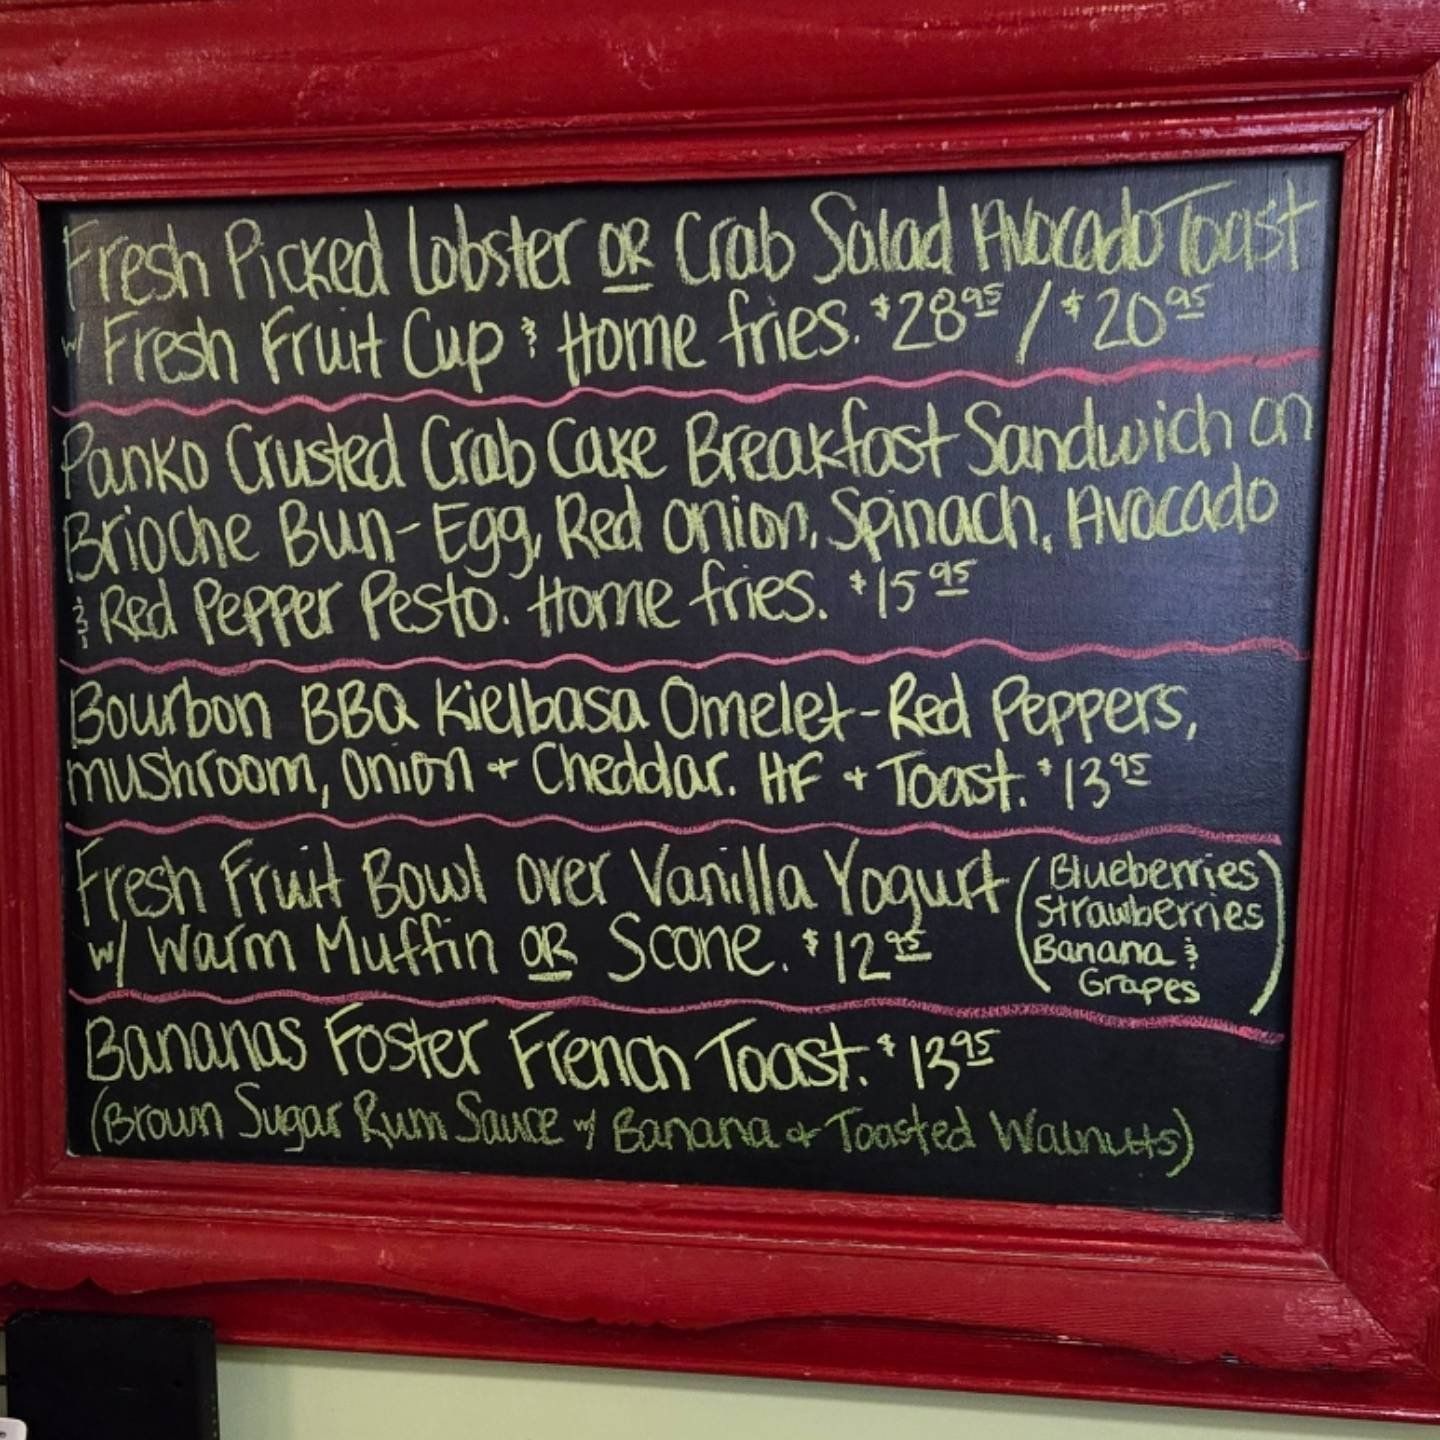 Fresh Picked Lobster OR Crab Salad Avocado Toast
w/ Fresh Fruit Cup & Home fries. $28.95 / $20.95
Panko Crusted Crab Cake Breakfast Sandwich on
Brioche Bun - Egg, Red Onion, Spinach, Avocado
& Red Pepper Pesto. Home fries. $15.95
Bourbon BBQ Kielbasa Omelet - Red Peppers,
mushroom, Onion + Cheddar. HF + Toast. $13.95
Fresh Fruit Bowl over Vanilla Yogurt
w/ Warm Muffin OR Scone. $12.95
(Blueberries
Strawberries
Banana &
Grapes)
Bananas Foster French Toast. $13.95
(Brown Sugar Rum Sauce w/ Banana + Toasted Walnutts)